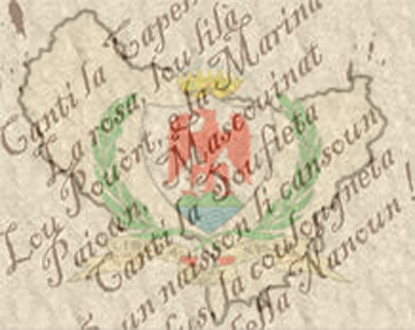 Canti la Capel
La rosa, lou lilà
Lou Pouòrt, e la Marina
Paioun, Mascouinat
Canti la Soufieta
oun naisson li cansoun
lus, la coulougneta
ella Nanoun !